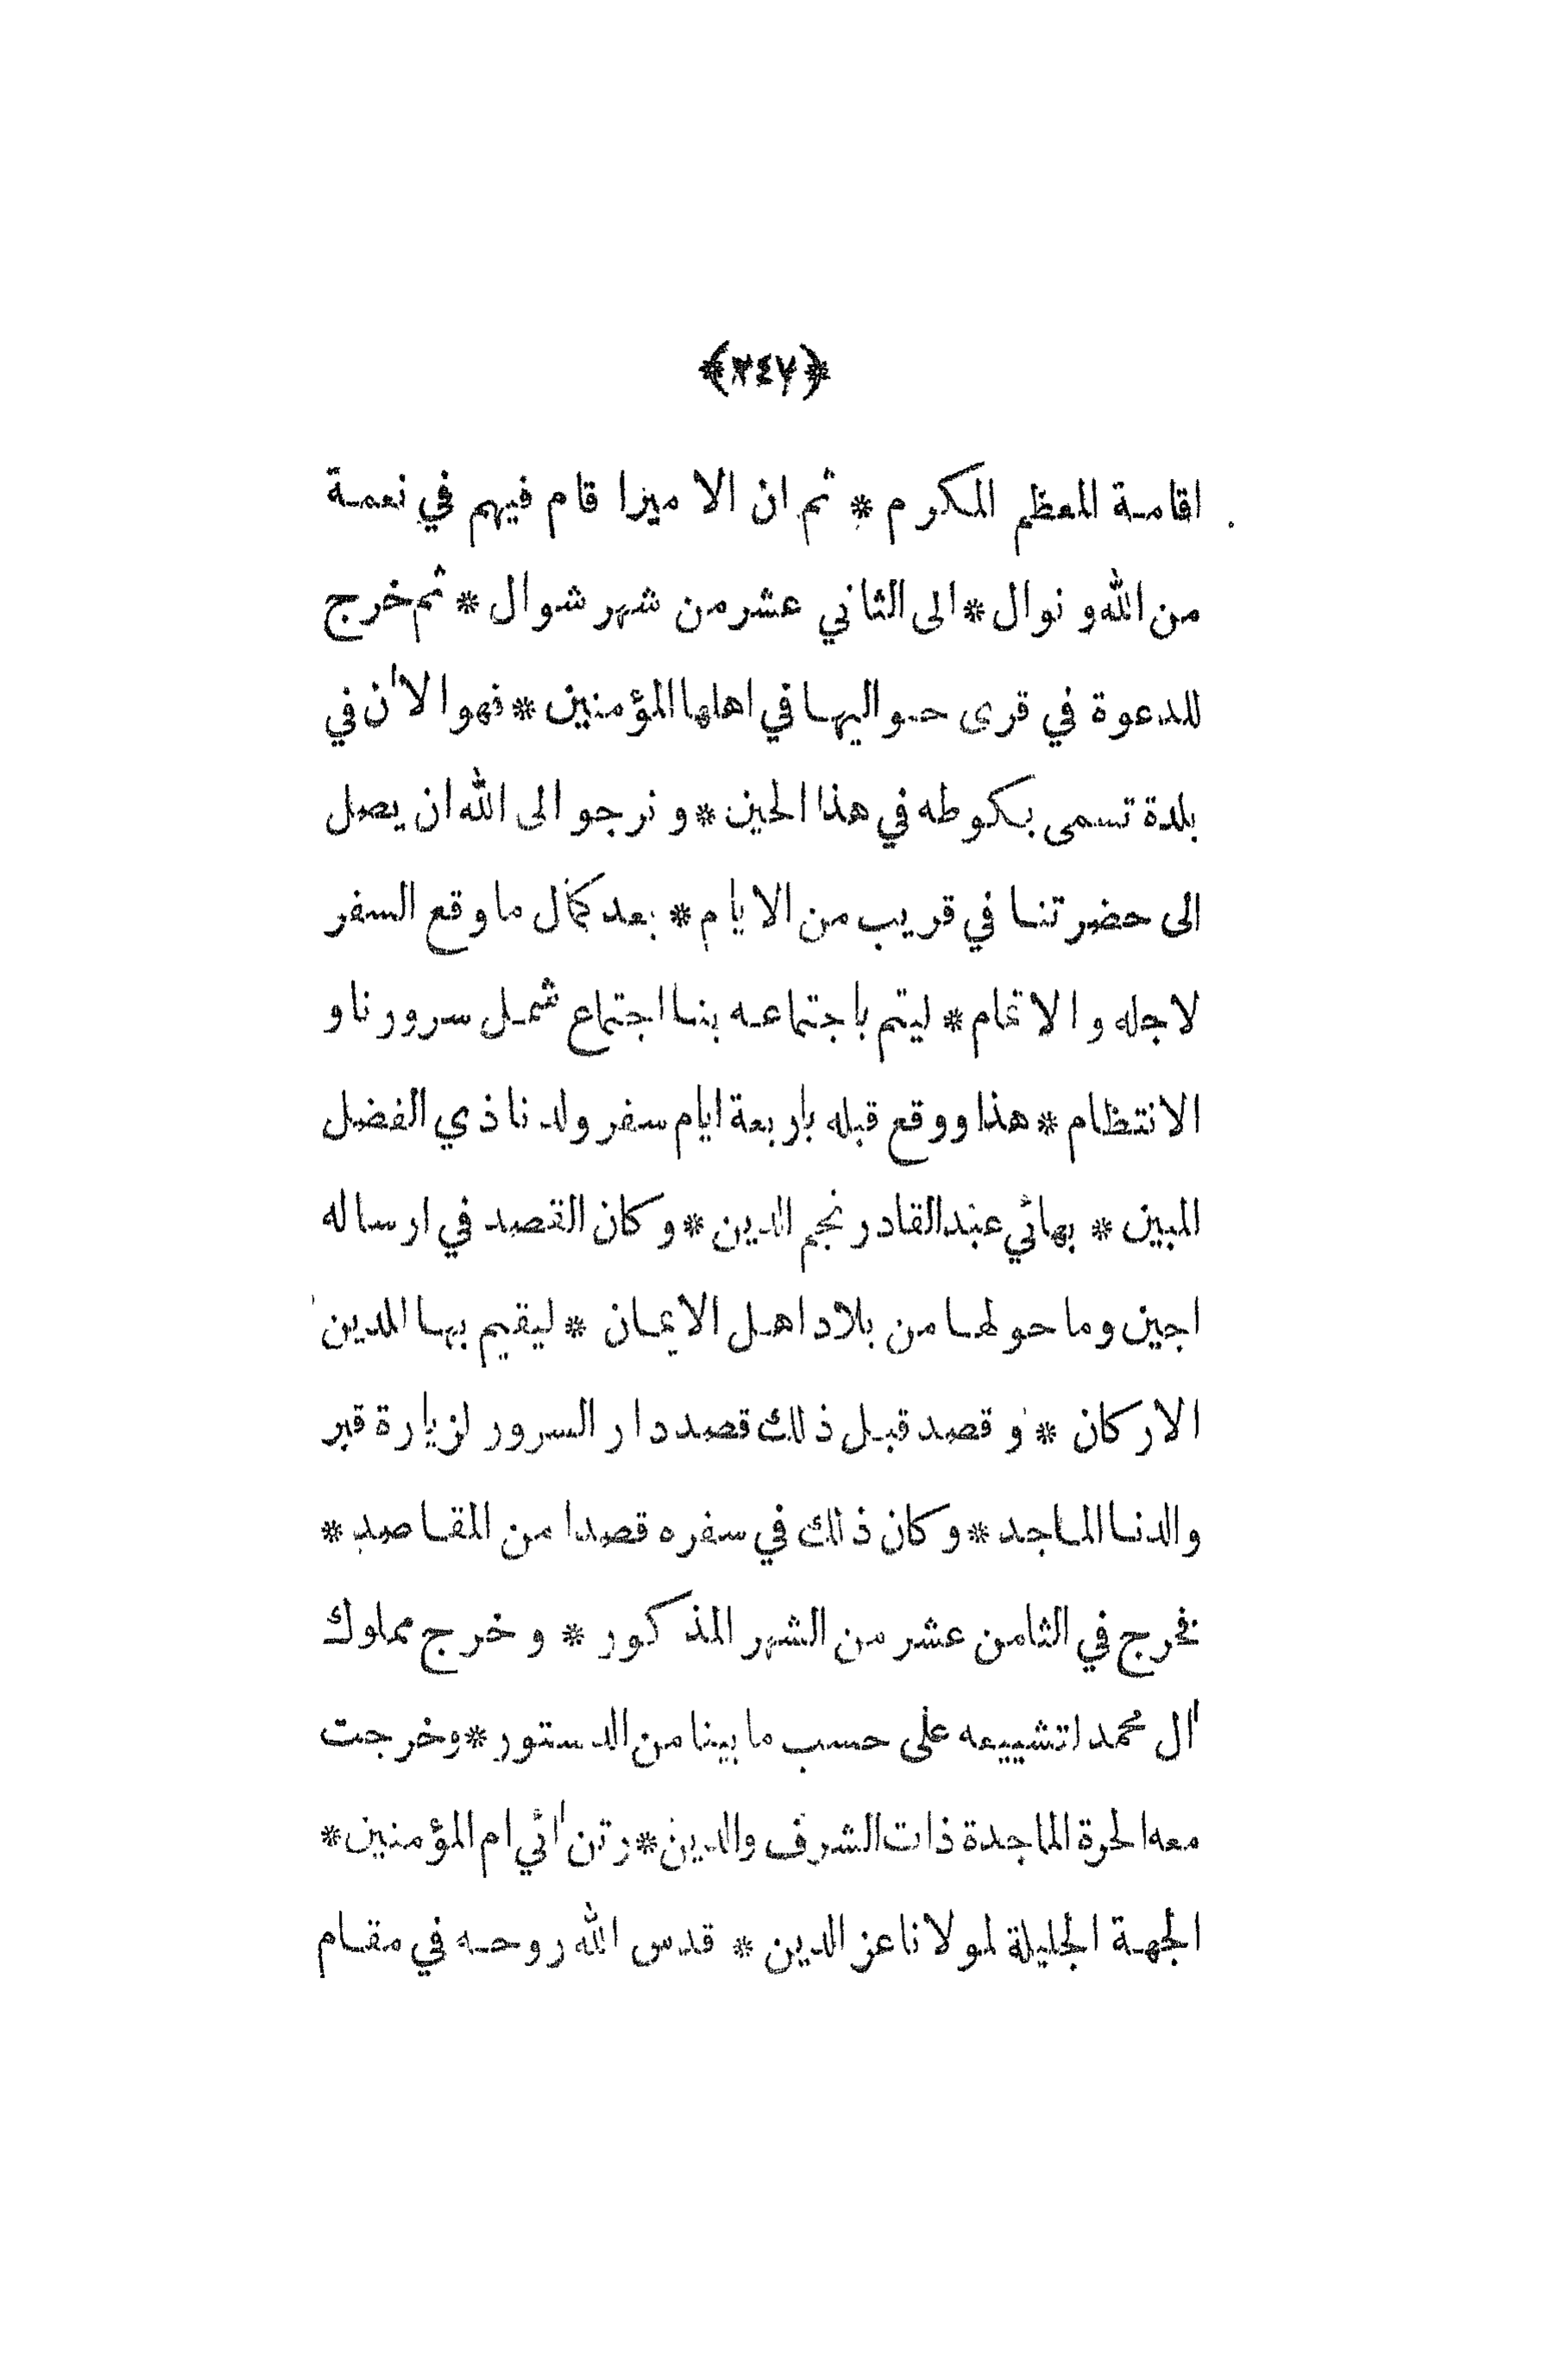 ﴿٢٤٧﴾
اقامة المعظم المكرم * ثم ان الا ميزا قام فيهم في نعمة
من الله و نوال * الى الثاني عشر من شهر شوال * ثم خرج
للدعوة في قرى حواليها في اهلها المؤمنين * فهو الاٰن في
بلدة تسمى بكوطه في هذا الحين * و نرجو الى الله ان يصل
الى حضرتنا في قريب من الايام * بعد كمال ما وقع السفر
لاجله و الاتمام * ليتم باجتماعه بنا اجتماع شمل سرورنا و
الانتظام * هذا ووقع قبله باربعة ايام سفر ولدنا ذي الفضل
المبين * بهائي عبد القادر نجم الدين * و كان القصد في ارساله
اجين وما حولها من بلاد اهل الايمان * ليقيم بها للدين
الاركان * و قصد قبل ذلك قصد دار السرور لزيارة قبر
والدنا الماجد * و كان ذلك في سفره قصدا من المقاصد *
فخرج في الثامن عشر من الشهر المذكور * و خرج مملوك
اٰل محمد لتشييعه على حسب ما بينا من الدستور * وخرجت
معه الحرة الماجدة ذات الشرف والدين * رتن اٰئي ام المؤمنين *
الجهة الجليلة لمولانا عز الدين * قدس الله روحه في مقام